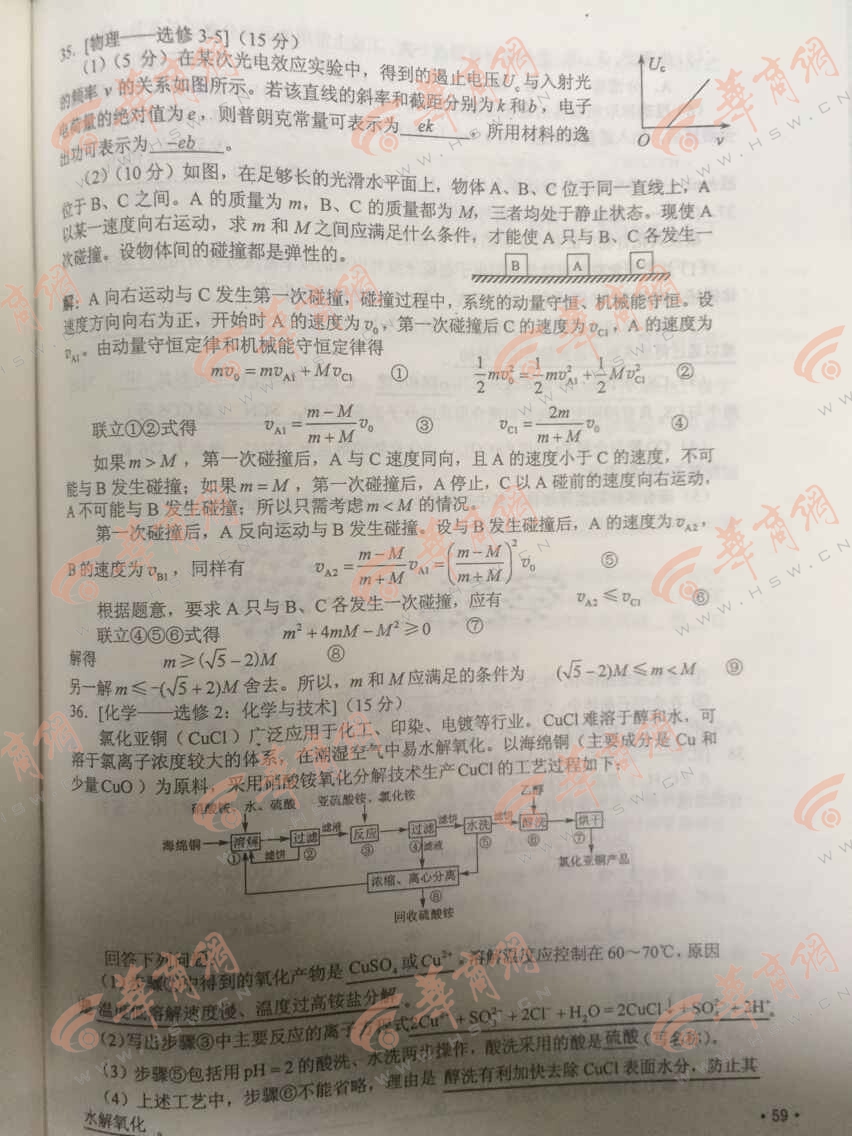 35. [物理——选修 3-5]（15 分）
（1）（5 分）在某次光电效应实验中，得到的遏止电压U_c与入射光
的频率 ν 的关系如图所示。若该直线的斜率和截距分别为 k 和 b，电子
电荷量的绝对值为 e，则普朗克常量可表示为 ek 。所用材料的逸
出功可表示为 -eb 。
U_c
O ν
（2）（10 分）如图，在足够长的光滑水平面上，物体 A、B、C 位于同一直线上，A
位于 B、C 之间。A 的质量为 m，B、C 的质量都为 M，三者均处于静止状态。现使 A
以某一速度向右运动，求 m 和 M 之间应满足什么条件，才能使 A 只与 B、C 各发生一
次碰撞。设物体间的碰撞都是弹性的。
B A C
解：A 向右运动与 C 发生第一次碰撞，碰撞过程中，系统的动量守恒、机械能守恒。设
速度方向向右为正，开始时 A 的速度为 v_0，第一次碰撞后 C 的速度为 v_C1，A 的速度为
v_A1。由动量守恒定律和机械能守恒定律得
mv_0 = mv_A1 + Mv_C1 ① 1/2 mv_0^2 = 1/2 mv_A1^2 + 1/2 Mv_C1^2 ②
联立①②式得 v_A1 = (m−M)/(m+M) v_0 ③ v_C1 = 2m/(m+M) v_0 ④
如果 m > M，第一次碰撞后，A 与 C 速度同向，且 A 的速度小于 C 的速度，不可
能与 B 发生碰撞；如果 m = M，第一次碰撞后，A 停止，C 以 A 碰前的速度向右运动，
A 不可能与 B 发生碰撞；所以只需考虑 m < M 的情况。
第一次碰撞后，A 反向运动与 B 发生碰撞。设与 B 发生碰撞后，A 的速度为 v_A2，
B 的速度为 v_B1，同样有 v_A2 = (m−M)/(m+M) v_A1 = ((m−M)/(m+M))^2 v_0 ⑤
根据题意，要求 A 只与 B、C 各发生一次碰撞，应有 v_A2 ≤ v_C1 ⑥
联立④⑤⑥式得 m^2 + 4mM − M^2 ≥ 0 ⑦
解得 m ≥ (√5 − 2)M ⑧
另一解 m ≤ −(√5 + 2)M 舍去。所以，m 和 M 应满足的条件为 (√5 − 2)M ≤ m < M ⑨
36. [化学——选修 2：化学与技术]（15 分）
氯化亚铜（CuCl）广泛应用于化工、印染、电镀等行业。CuCl 难溶于醇和水，可
溶于氯离子浓度较大的体系，在潮湿空气中易水解氧化。以海绵铜（主要成分是 Cu 和
少量 CuO）为原料，采用硝酸铵氧化分解技术生产 CuCl 的工艺过程如下：
硝酸铵、水、硫酸 亚硫酸铵、氯化铵 乙醇
海绵铜 溶解 过滤 滤液 反应 过滤 滤饼 水洗 滤饼 醇洗 烘干
① 滤饼 ② ③ ④ 滤液 ⑤ ⑥ ⑦
浓缩、离心分离 氯化亚铜产品
⑧
回收硫酸铵
回答下列问题：
（1）步骤①中得到的氧化产物是 CuSO4 或 Cu2+ 。溶解温度应控制在 60～70℃，原因
是 温度低溶解速度慢、温度过高铵盐分解 。
（2）写出步骤③中主要反应的离子方程式 2Cu2+ + SO3^2− + 2Cl− + H2O = 2CuCl↓ + SO4^2− + 2H+ 。
（3）步骤⑤包括用 pH = 2 的酸洗、水洗两步操作，酸洗采用的酸是 硫酸（写名称）。
（4）上述工艺中，步骤⑥不能省略，理由是 醇洗有利加快去除 CuCl 表面水分，防止其
水解氧化 。
·59·
華商網
WWW.HSW.CN